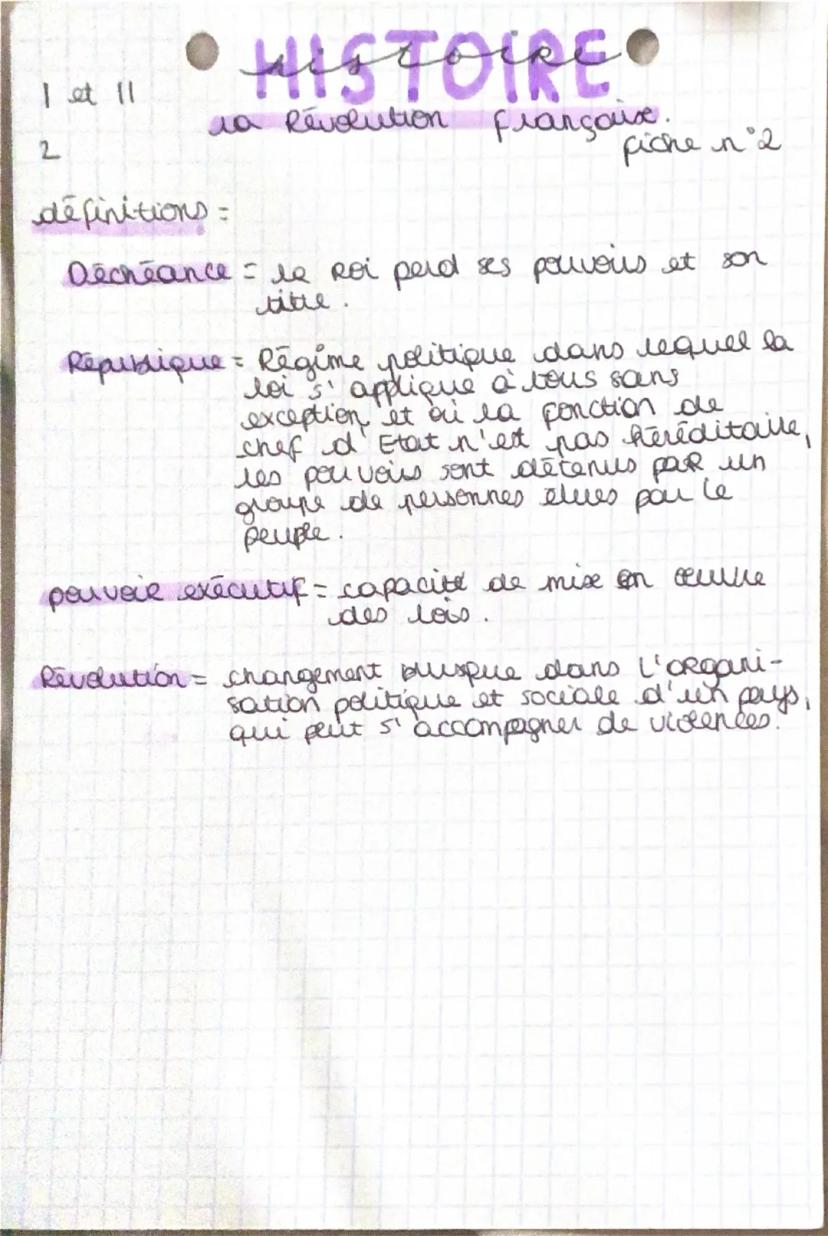 HISTOIRE
histoire
I et II
la Révolution française.
2
fiche n°2
définitions =
Déchéance = le Roi perd ses pouvoirs et son
titre.
République = Régime politique dans lequel la
loi s'applique à tous sans
exception et où la fonction de
chef d'Etat n'est pas héréditaire,
les pouvoirs sont détenus par un
groupe de personnes élues par le
peuple.
pouvoir exécutif = capacité de mise en œuvre
des lois.
Révolution = changement brusque dans l'organi-
sation politique et sociale d'un pays,
qui peut s'accompagner de violences.